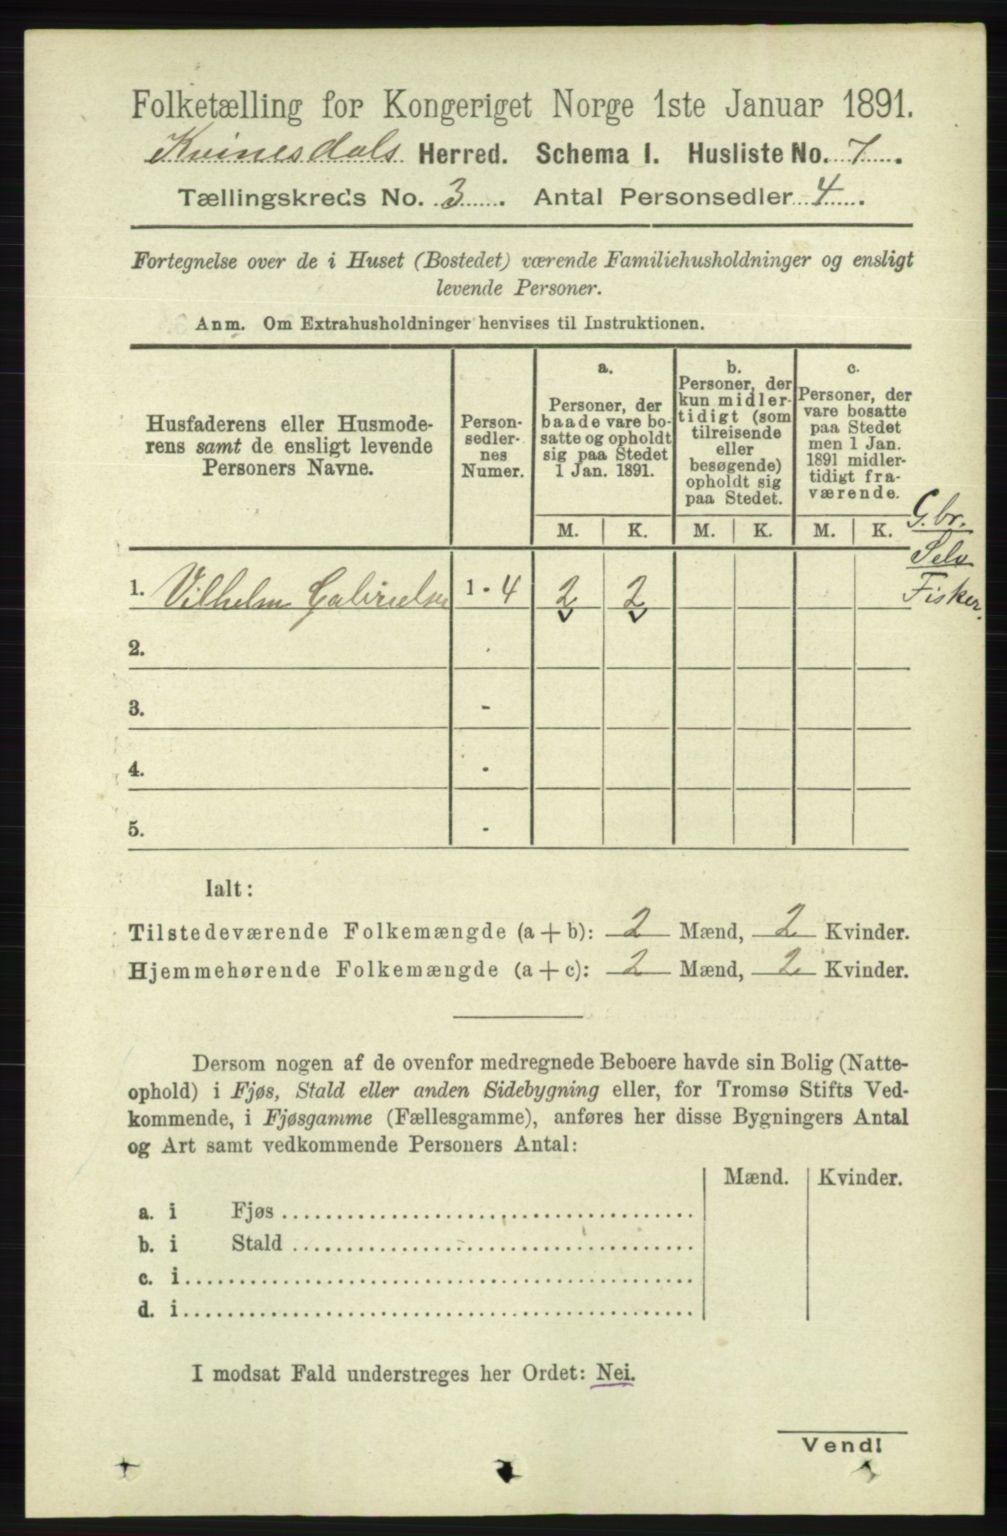 Folketælling for Kongeriget Norge 1ste Januar 1891.
Kvinesdals Herred. Schema I. Husliste No. 7.
Tællingskreds No. 3. Antal Personsedler 4.
Fortegnelse over de i Huset (Bostedet) værende Familiehusholdninger og ensligt
levende Personer.
Anm. Om Extrahusholdninger henvises til Instruktionen.
Husfaderens eller Husmode-
rens samt de ensligt levende
Personers Navne.
Person-
sedler-
nes
Numer.
a.
Personer, der
baade vare bo-
satte og opholdt
sig paa Stedet
1 Jan. 1891.
b.
Personer, der
kun midler-
tidigt (som
tilreisende
eller
besøgende)
opholdt sig
paa Stedet.
c.
Personer, der
vare bosatte
paa Stedet
men 1 Jan.
1891 midler-
tidigt fra-
værende.
M. K. M. K. M. K.
G.br.
Selv
Fisker.
1. Vilhelm Gabrielsen 1-4 2 2
2.
3. -
4. -
5. -
Ialt:
Tilstedeværende Folkemængde (a+b): 2 Mænd, 2 Kvinder.
Hjemmehørende Folkemængde (a+c): 2 Mænd, 2 Kvinder.
Dersom nogen af de ovenfor medregnede Beboere havde sin Bolig (Natte-
ophold) i Fjøs, Stald eller anden Sidebygning eller, for Tromsø Stifts Ved-
kommende, i Fjøsgamme (Fællesgamme), anføres her disse Bygningers Antal
og Art samt vedkommende Personers Antal:
Mænd. Kvinder.
a. i Fjøs
b. i Stald
c. i
d. i
I modsat Fald understreges her Ordet: Nei.
Vend!